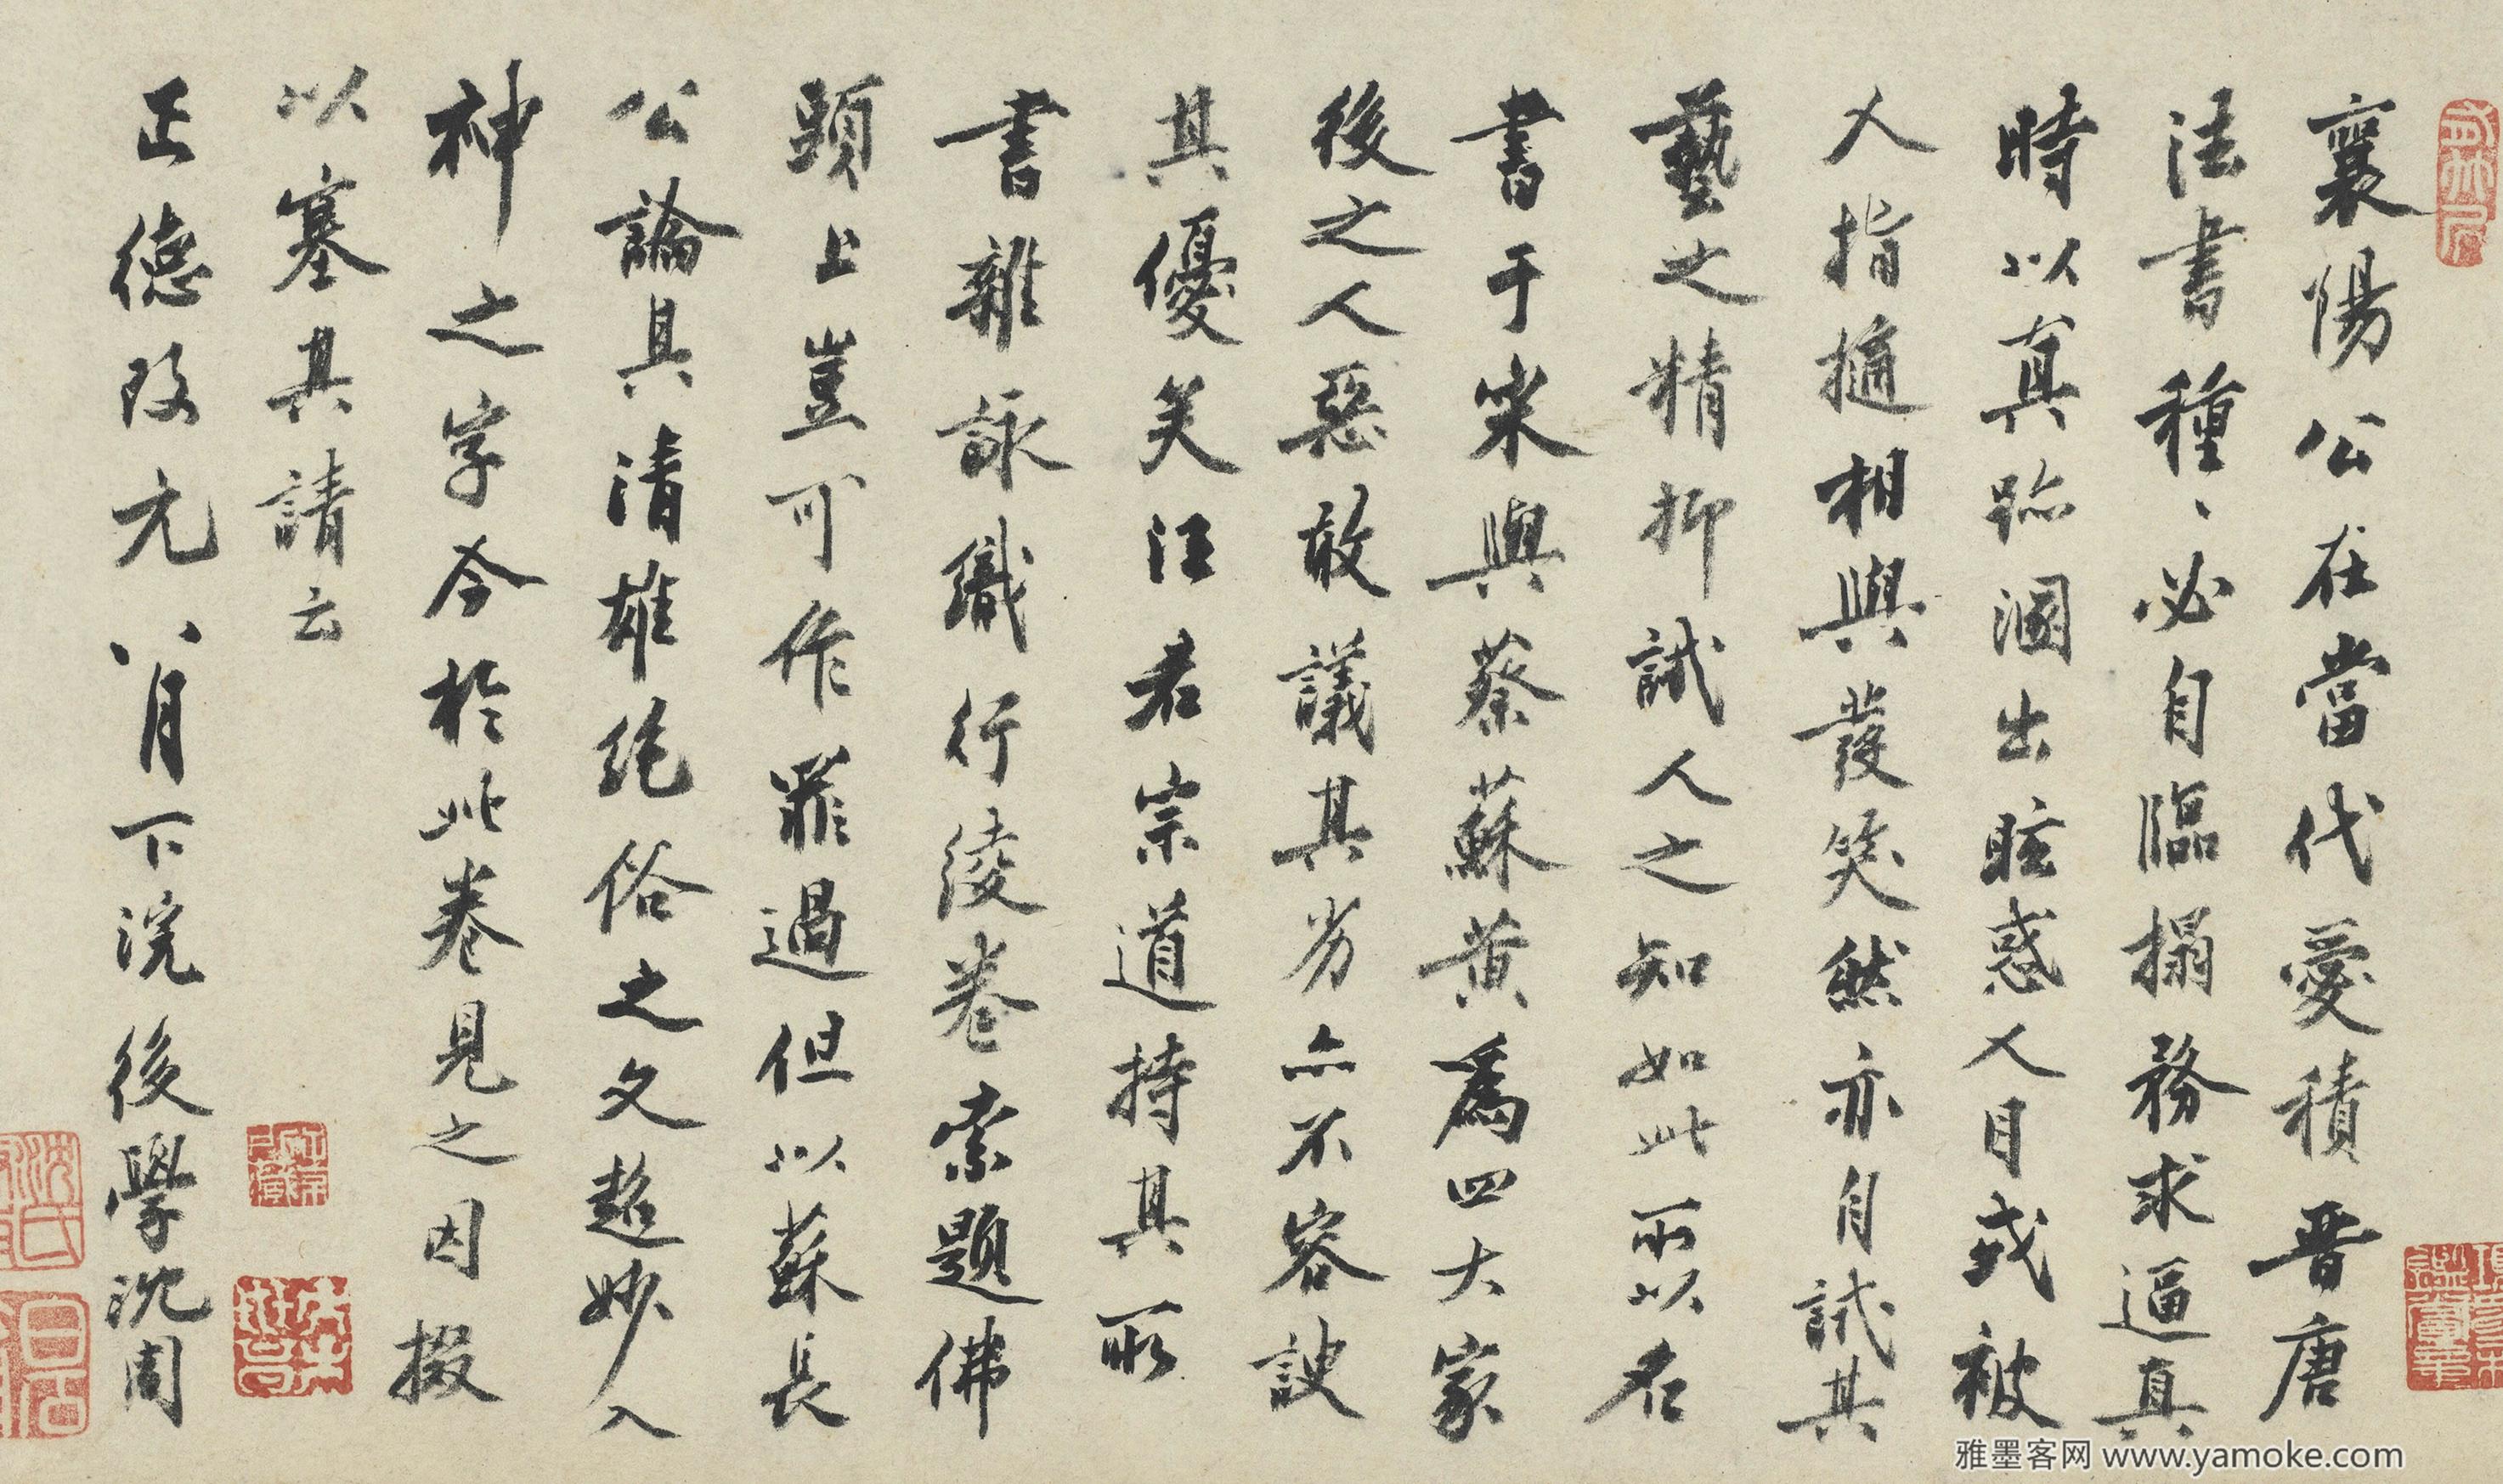 襄陽公在當代愛積晉唐
法書種、必自臨搨務求逼真
時以真跡溷出眩惑人目或被
人指擿相與發笑然亦自試其
藝之精抑試人之知如此所以名
書于宋與蔡蘇黃為四大家
後之人惡敢議其劣亦不容諛
其優矣汪君宗道持其所
書雜詠織行綾卷索題佛
頭上豈可作罪過但以蘇長
公論具清雄絕俗之文超妙入
神之字今於此卷見之因掇
以塞其請云
正德改元八月下浣後學沈周
雅墨客网 www.yamoke.com